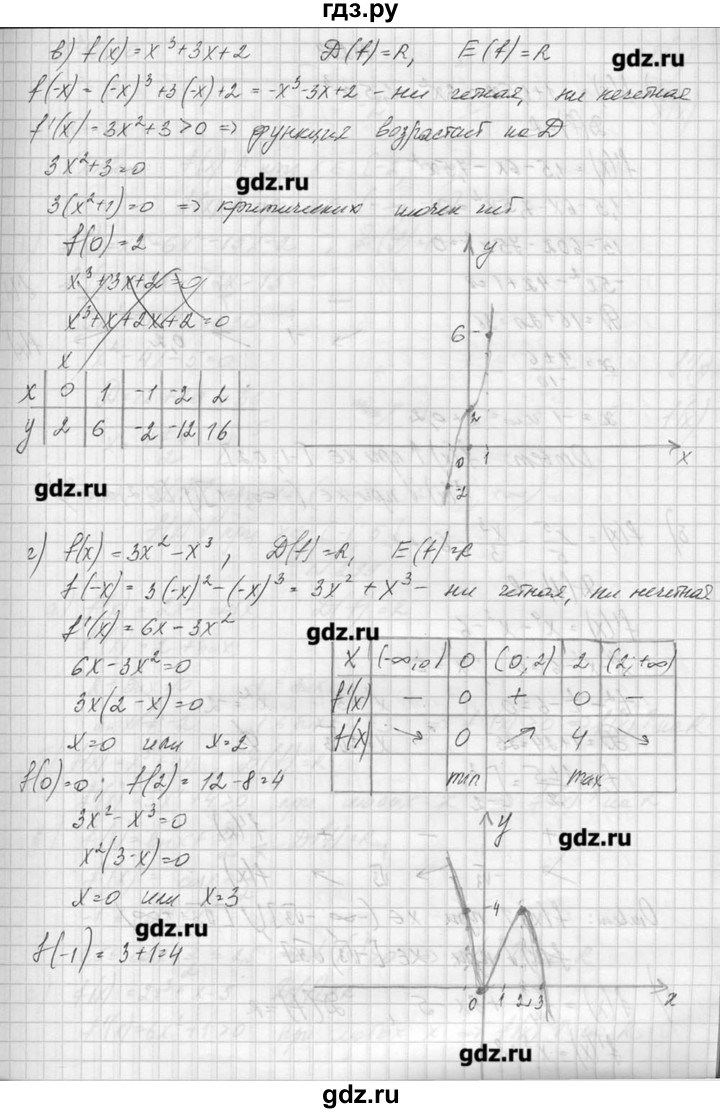 гдз.ру
в) f(x) = x³+3x+2   D(f)=R,   E(f)=R
gdz.ru
f(-x) = (-x)³+3(-x)+2 = -x³-3x+2 - ни четная, ни нечетная
f'(x) = 3x²+3>0 => функция возрастает на D
3x²+3=0
gdz.ru
3(x²+1)=0 => критических точек нет
f(0)=2
x³+3x+2=0
x³+x+2x+2=0
x
x 0 1 -1 -2 2
y 2 6 -2 -12 16
y
6
2
0 1 x
-2
gdz.ru
gdz.ru
г) f(x) = 3x²-x³,   D(f)=R,   E(f)=R
f(-x) = 3(-x)²-(-x)³ = 3x²+x³ - ни четная, ни нечетная
f'(x) = 6x-3x²
gdz.ru
6x-3x²=0
3x(2-x)=0
x=0 или x=2
x (-∞;0) 0 (0;2) 2 (2;+∞)
f'(x) - 0 + 0 -
f(x) ↘ 0 ↗ 4 ↘
min max
f(0)=0; f(2)=12-8=4
3x²-x³=0
x²(3-x)=0
x=0 или x=3
gdz.ru
f(-1)=3+1=4
y
gdz.ru
4
0 1 2 3 x
gdz.ru
gdz.ru